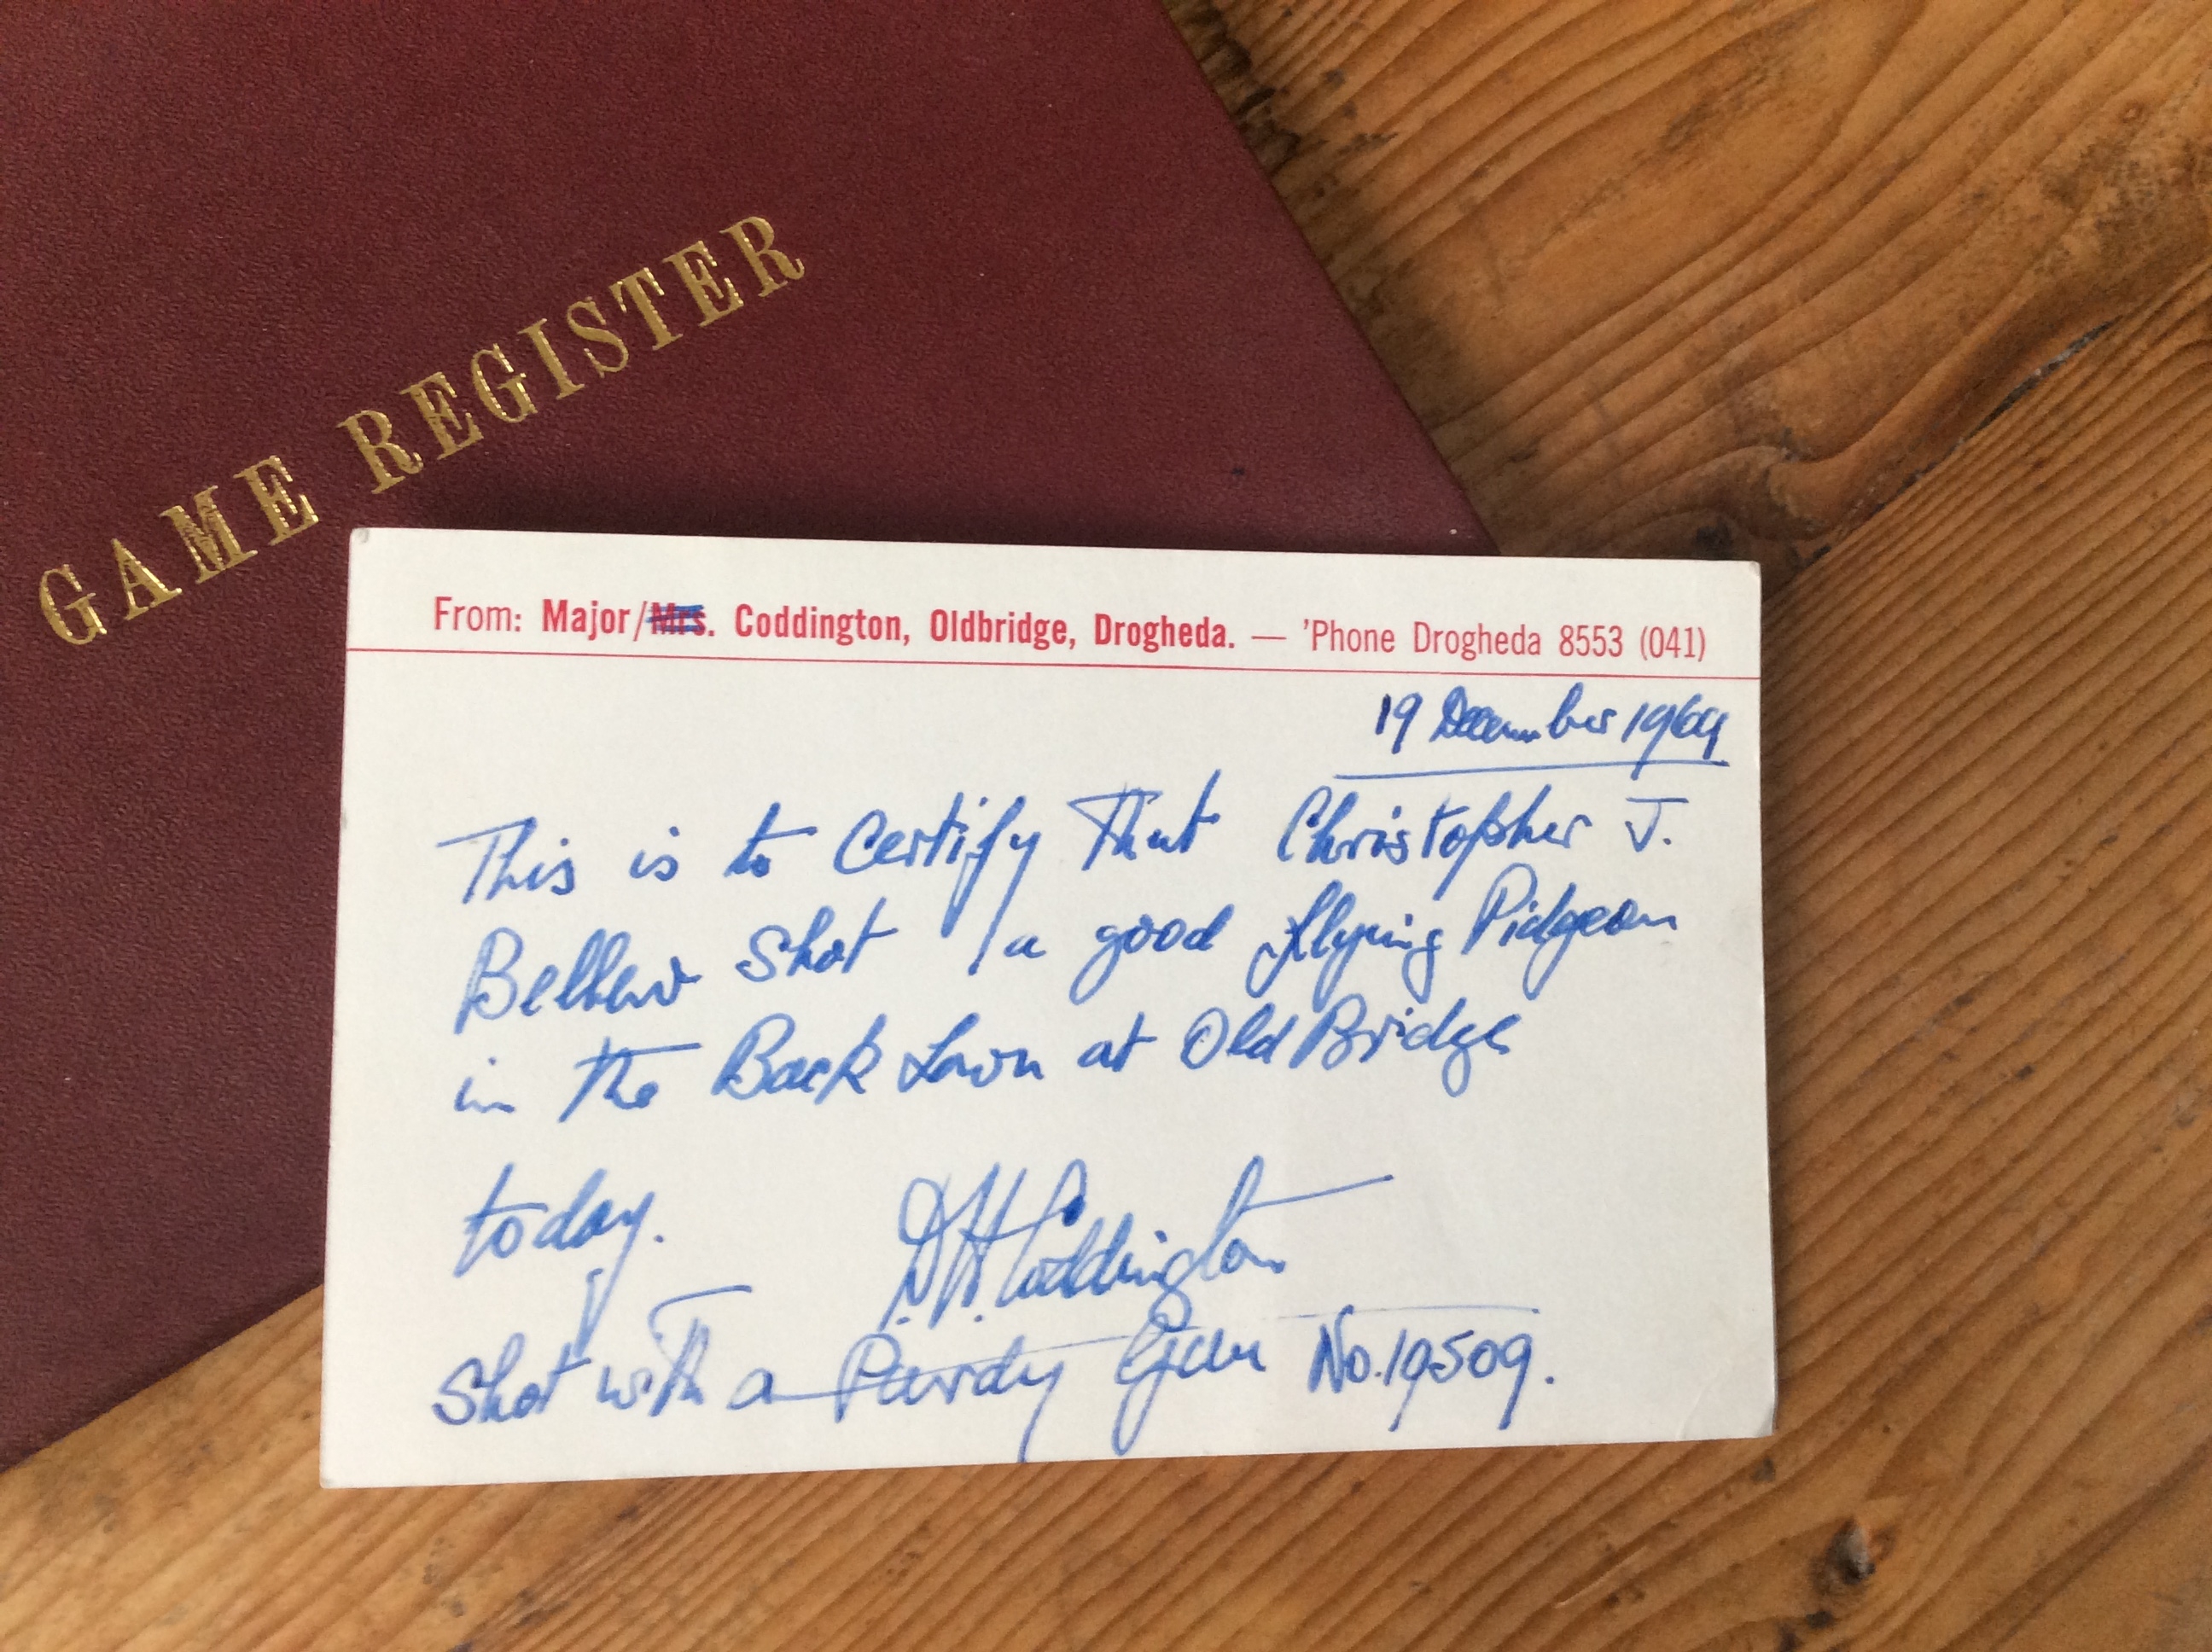 GAME REGISTER
From: Major/Mrs. Coddington, Oldbridge, Drogheda. — 'Phone Drogheda 8553 (041)
19 December 1969
This is to Certify That Christopher J.
Bellew Shot a good flying Pidgeon
in The Back Lawn at Old Bridge
today. D.H. Coddington
Shot with a Purdy Gun No. 19509.